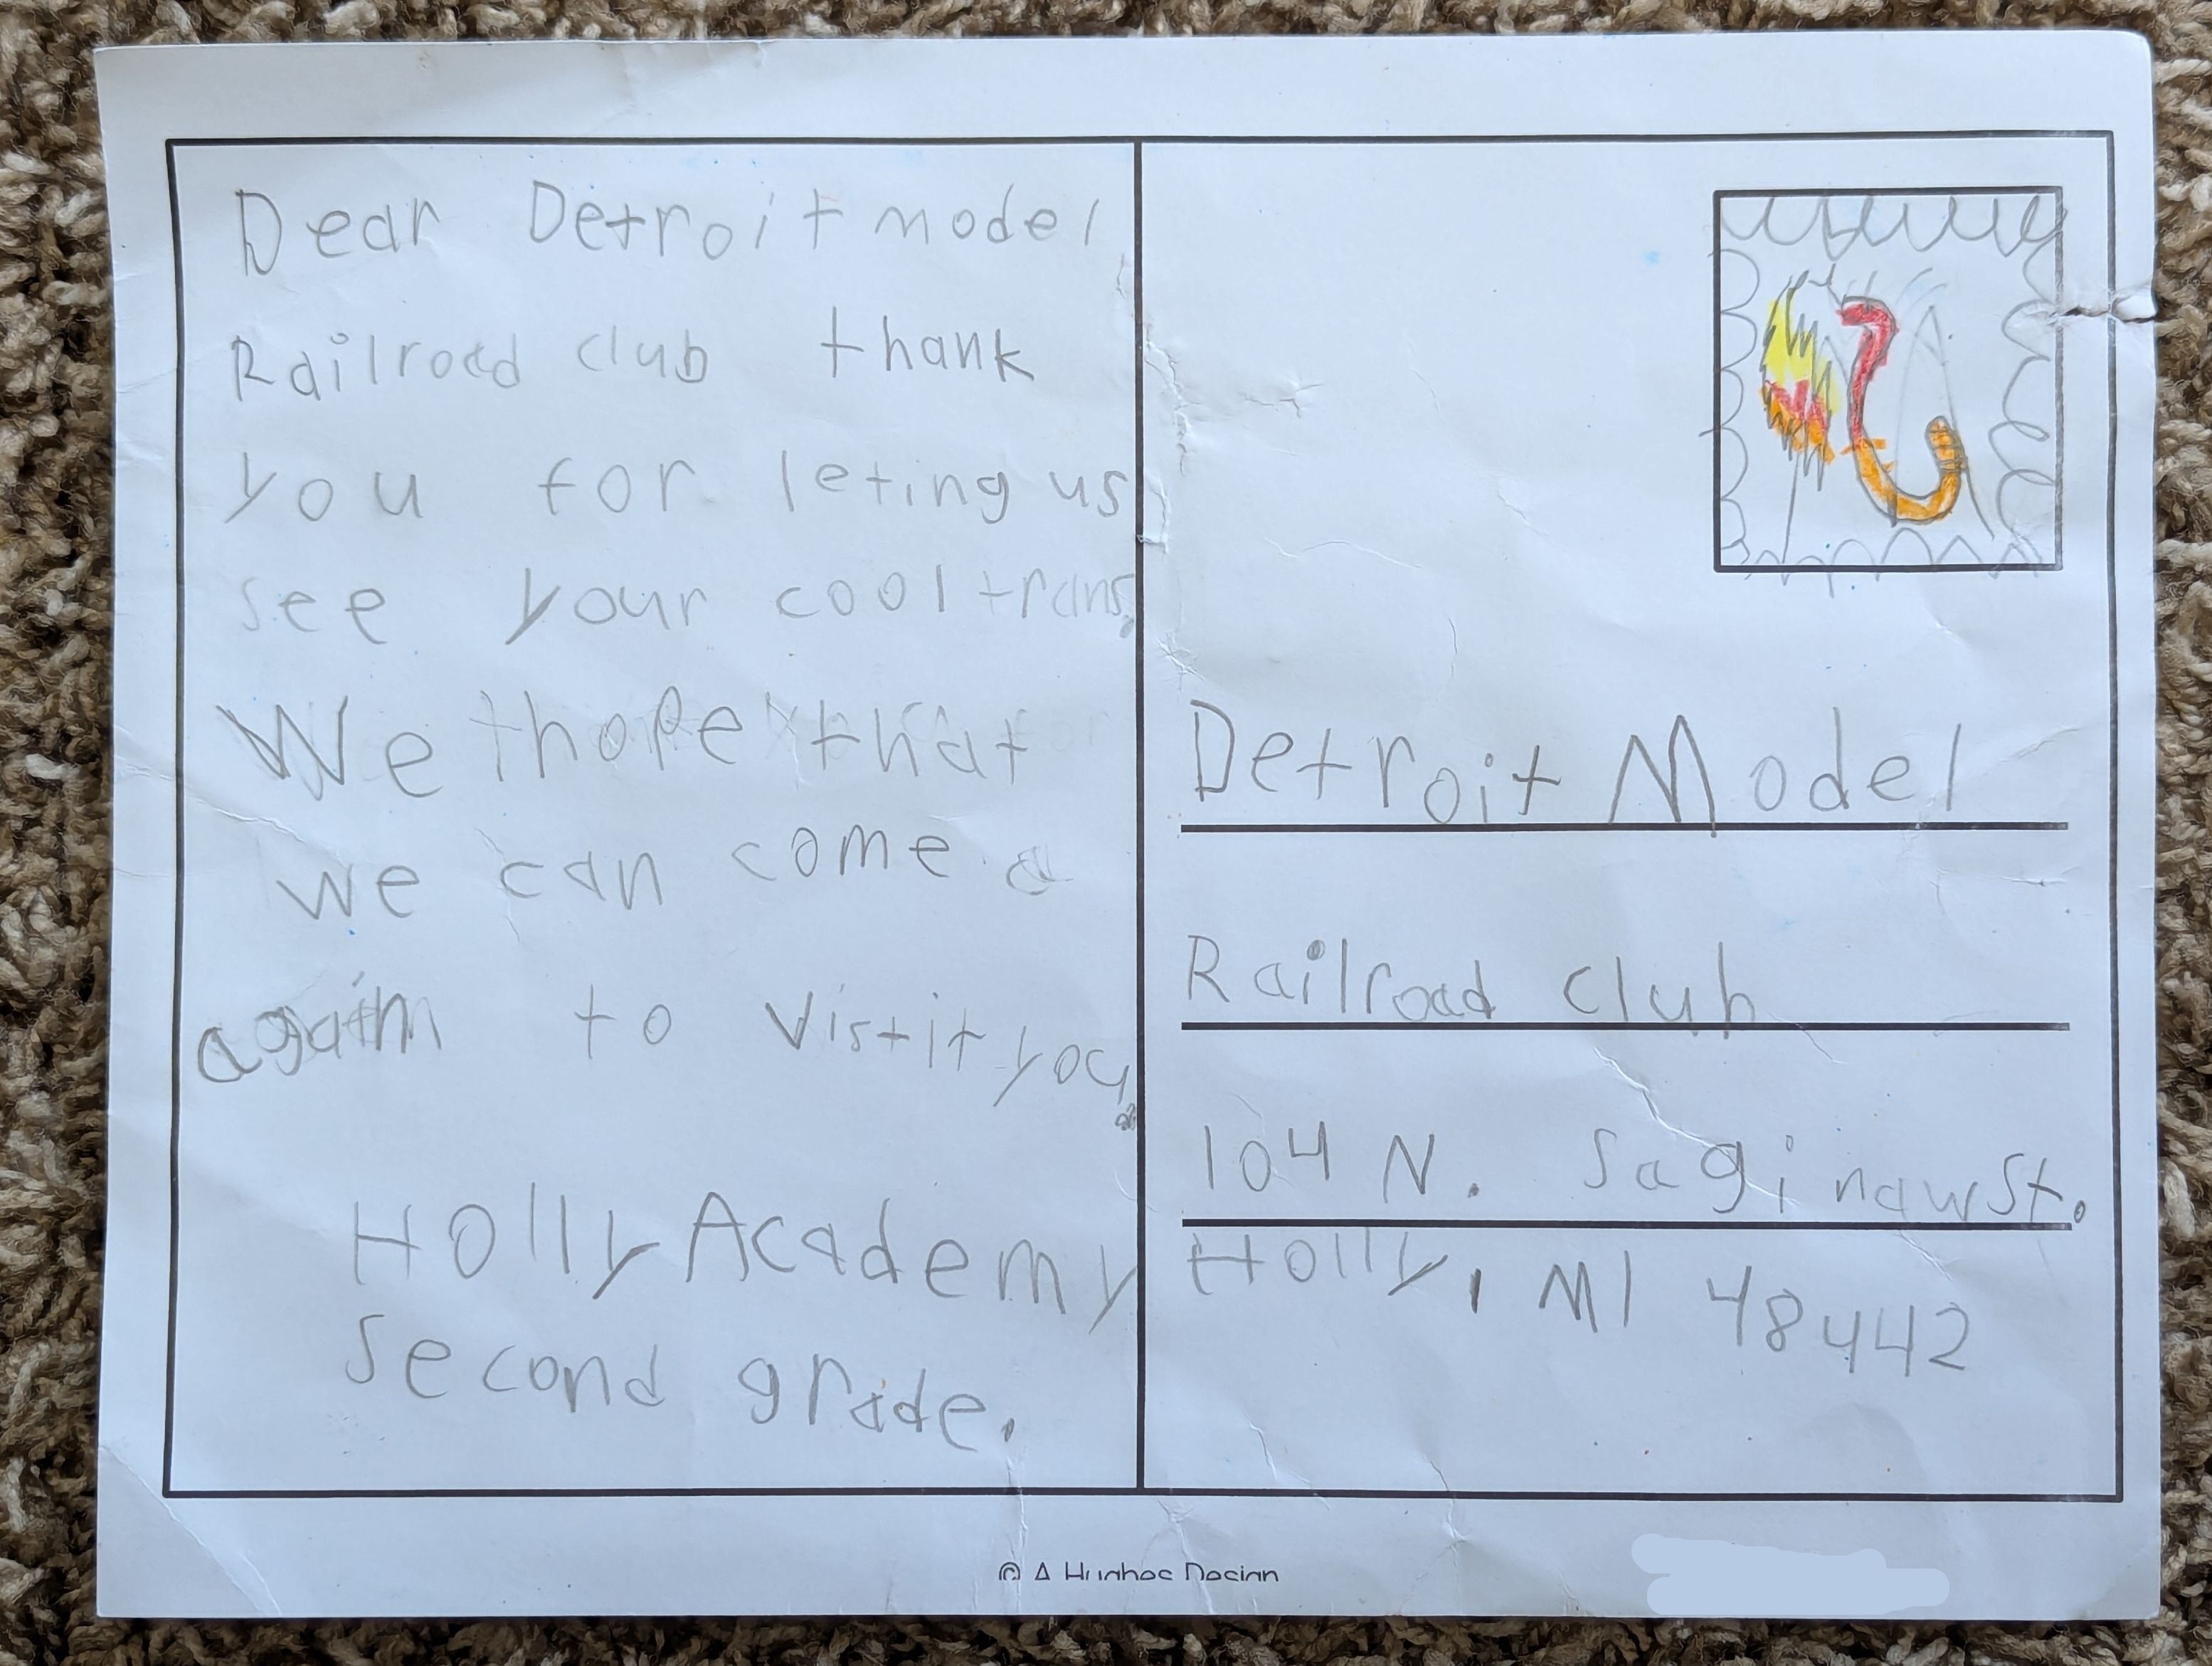 Dear Detroit model
Railroad club thank
you for leting us
see your cool trans.
We hope that
we can come a
again to vistit you.
Holly Academy
second grade.
Detroit Model
Railroad club
104 N. Saginaw St.
Holly, MI 48442
© A Hughes Design